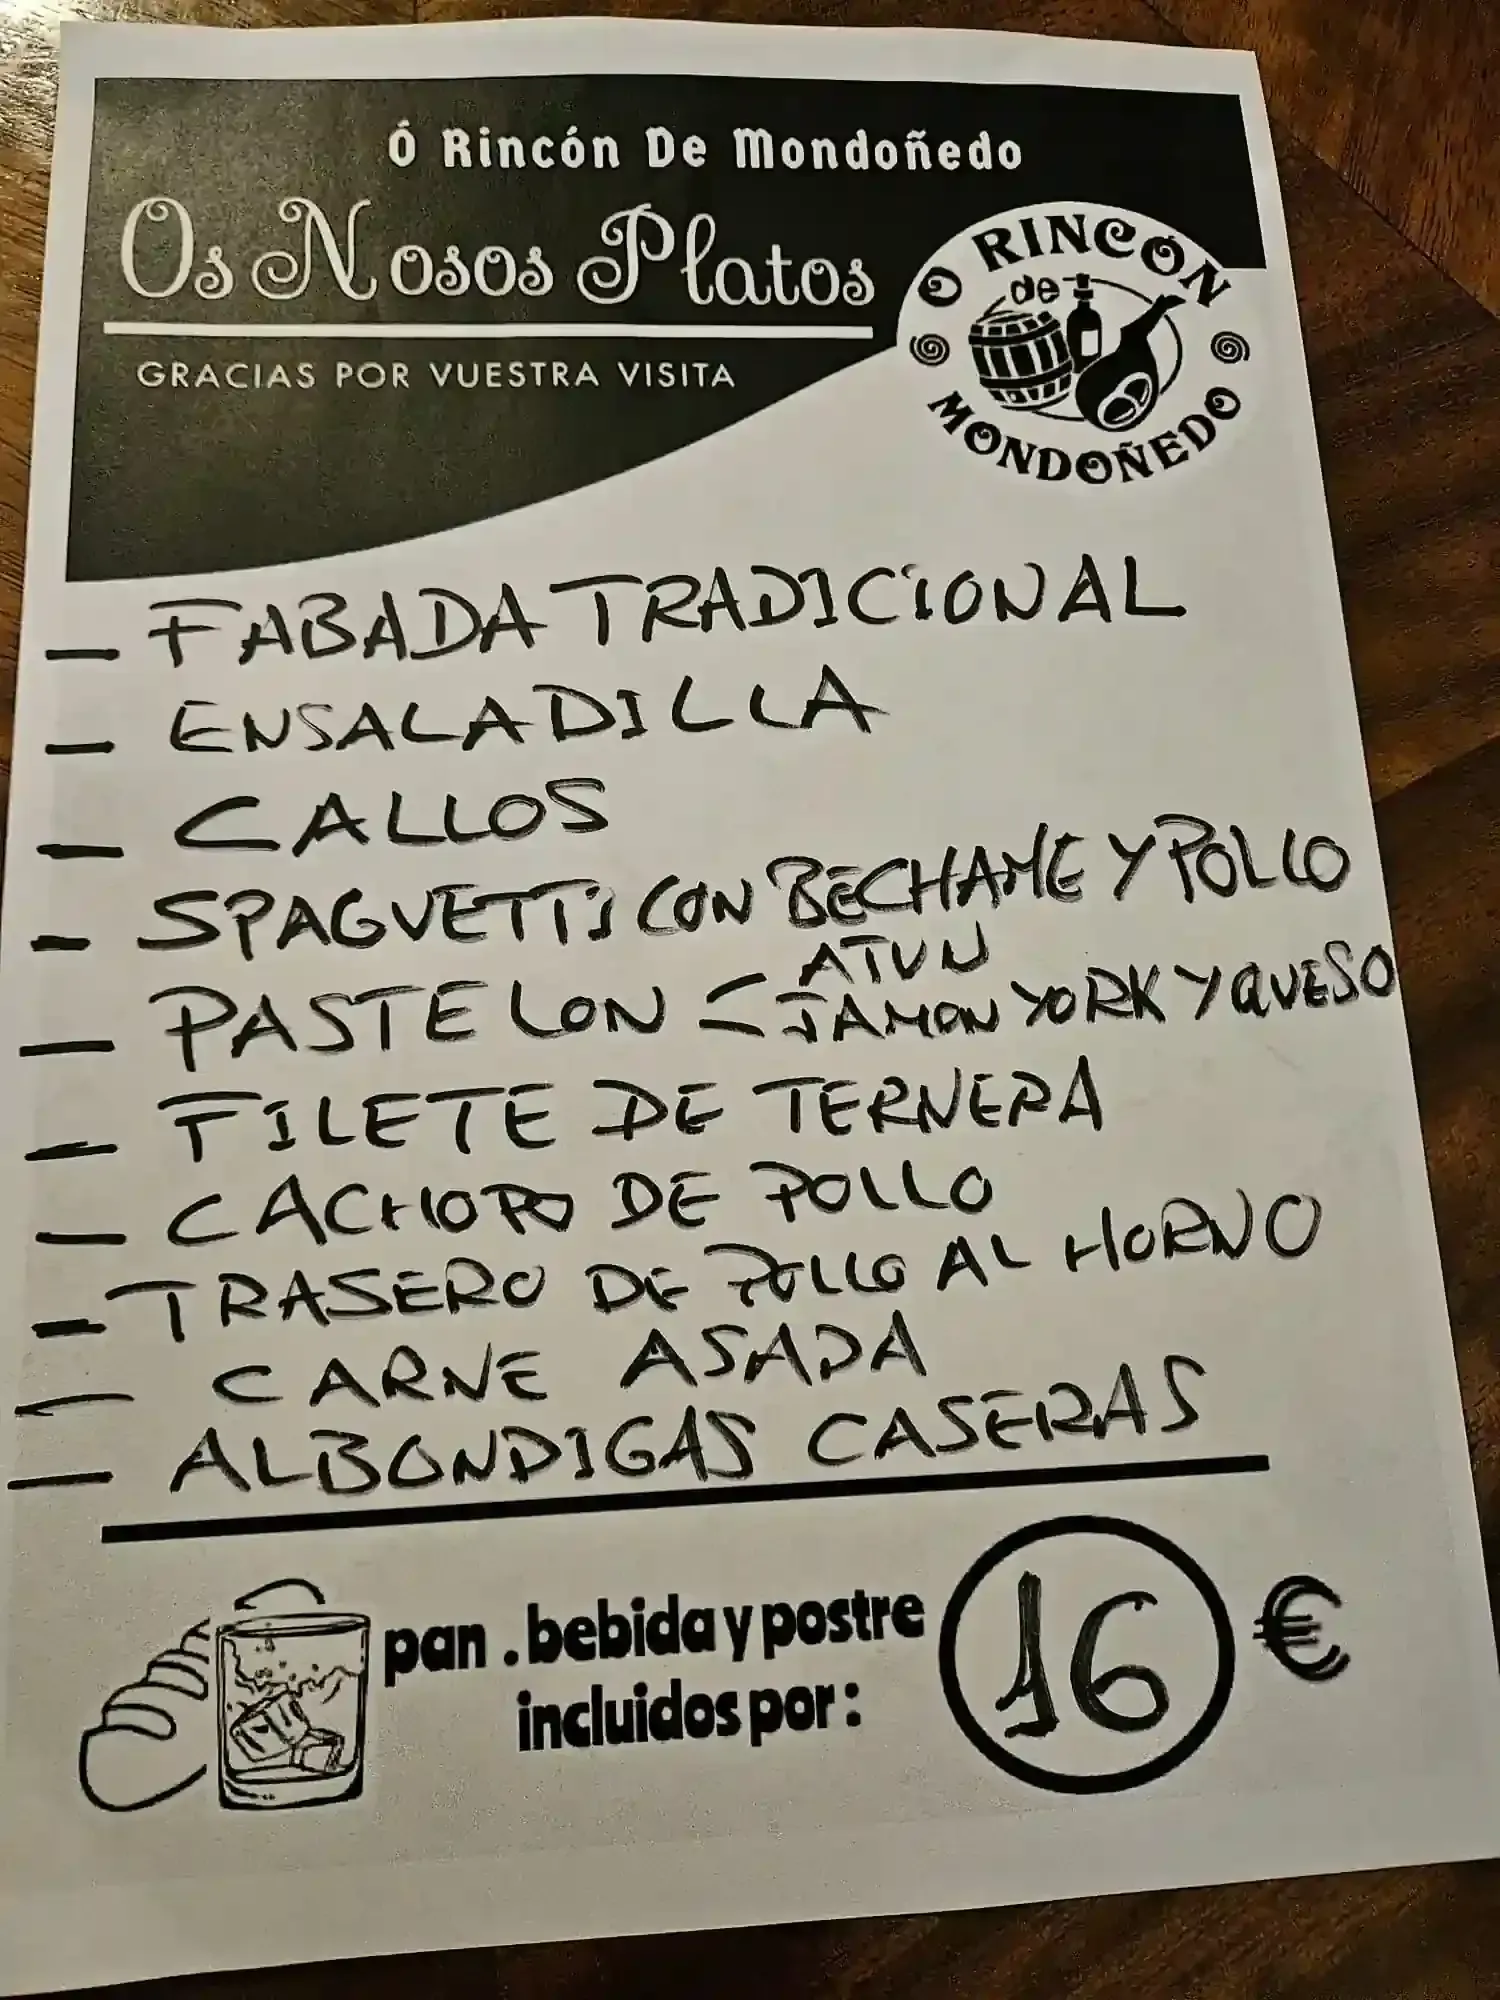 Ó Rincón De Mondoñedo
Os Nosos Platos
GRACIAS POR VUESTRA VISITA
O RINCÓN
de
MONDOÑEDO
- FABADA TRADICIONAL
- ENSALADILLA
- CALLOS
- SPAGUETTIS CON BECHAME Y POLLO
- PASTELON < ATUN
JAMON YORK Y QUESO
- FILETE DE TERNERA
- CACHOPO DE POLLO
- TRASERO DE POLLO AL HORNO
- CARNE ASADA
- ALBONDIGAS CASERAS
pan . bebida y postre
incluidos por :
16 €